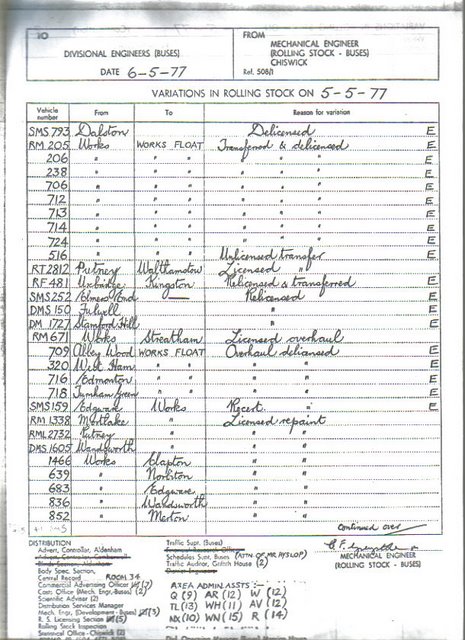 TO
DIVISIONAL ENGINEERS (BUSES)
DATE 6-5-77
FROM
MECHANICAL ENGINEER
(ROLLING STOCK - BUSES)
CHISWICK
Ref. 508/1
VARIATIONS IN ROLLING STOCK ON 5-5-77
Vehicle number From To Reason for variation
SMS 793 Dalston Delicensed E
RM 205 Works WORKS FLOAT Transferred & delicensed E
206 " " " " " E
238 " " " " " E
706 " " " " " E
712 " " " " " E
713 " " " " " E
714 " " " " " E
724 " " " " " E
516 " " " Unlicensed transfer E
RT 2812 Putney Walthamstow Licensed "
RF 481 Uxbridge Kingston Relicensed & transferred E
SMS 252 Elmers End — Relicensed E
DMS 150 Fulwell " E
DM 1727 Stamford Hill " E
RM 671 Works Streatham Licensed overhaul
709 Abbey Wood WORKS FLOAT Overhaul delicensed E
320 West Ham " " " " E
716 Edmonton " " " " E
718 Turnham Green " " " " E
SMS 159 Edgware Works Recert. " E
RM 1338 Mortlake " Licensed repaint
RML 2732 Putney " " "
DMS 1605 Wandsworth " " "
1466 Works Clapton " "
639 " Norbiton " "
683 " Edgware " "
836 " Wandsworth " "
852 " Merton " "
Continued over
DISTRIBUTION
Advert. Controller, Aldenham
Body Spec. Section,
Central Record ROOM 34
Commercial Advertising Officer
Costs Office (Mech. Engr.-Buses) (2)
Scientific Adviser (2)
Distribution Services Manager
Mech. Engr. (Development - Buses) (3)
R. S. Licensing Section
Rolling Stock Inspection
Statistical Office - Chiswick (2)
Traffic Supt. (Buses)
Schedules Supt. Buses (ATTN. OF MR HYSLOP)
Traffic Auditor, Griffith House (2)
AREA ADMIN. ASSTS :-
Q (9) AR (12) W (12)
TL (13) WH (11) AV (12)
NX (10) WN (15) R (14)
MECHANICAL ENGINEER
(ROLLING STOCK - BUSES)